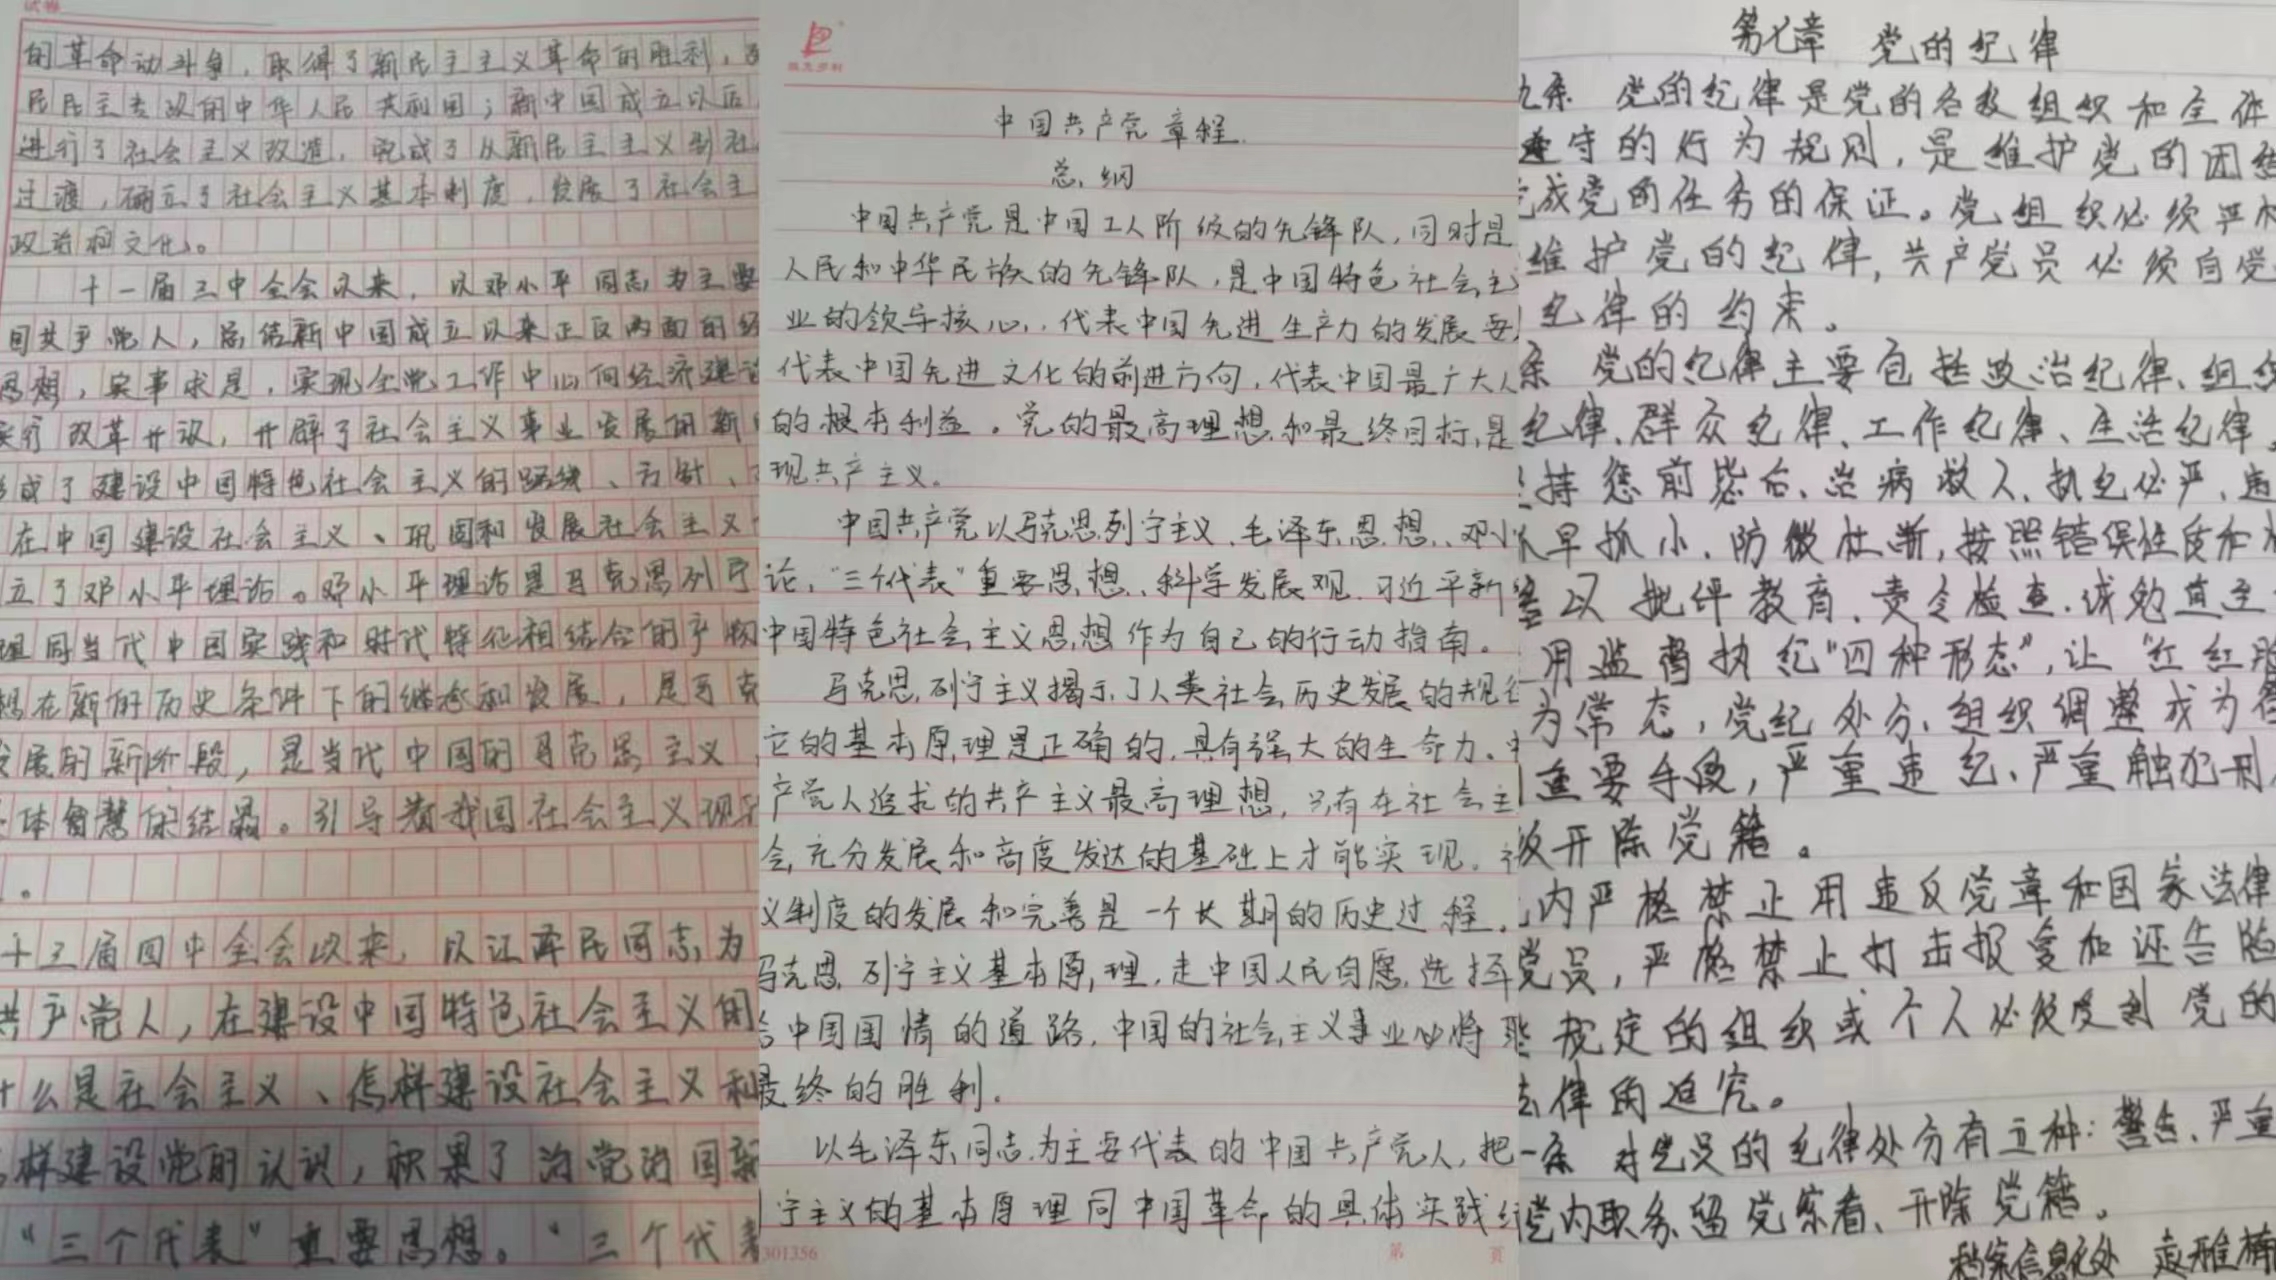 试卷
的革命动斗争，取得了新民主主义革命的胜利，
民民主专政的中华人民共和国；新中国成立以后
进行了社会主义改造，完成了从新民主主义到社
过渡，确立了社会主义基本制度，发展了社会主
政治和文化。
十一届三中全会以来，以邓小平同志为主要
国共产党人，总结新中国成立以来正反两面的经
思想，实事求是，实现全党工作中心向经济建设
实行改革开放，开辟了社会主义事业发展的新
形成了建设中国特色社会主义的路线、方针、
在中国建设社会主义、巩固和发展社会主义
立了邓小平理论。邓小平理论是马克思列宁
理同当代中国实践和时代特征相结合的产物
想在新的历史条件下的继承和发展，是马克
发展的新阶段，是当代中国的马克思主义
体智慧的结晶。引导着我国社会主义现
。
十三届四中全会以来，以江泽民同志为
共产党人，在建设中国特色社会主义的
什么是社会主义、怎样建设社会主义和
样建设党的认识，积累了治党治国新
“三个代表”重要思想。“三个代表
中国共产党章程
总纲
中国共产党是中国工人阶级的先锋队，同时是
人民和中华民族的先锋队，是中国特色社会主
业的领导核心，代表中国先进生产力的发展要
代表中国先进文化的前进方向，代表中国最广大人
的根本利益。党的最高理想和最终目标是
现共产主义。
中国共产党以马克思列宁主义、毛泽东思想、邓小
论、“三个代表”重要思想、科学发展观、习近平新
中国特色社会主义思想作为自己的行动指南。
马克思列宁主义揭示了人类社会历史发展的规律
它的基本原理是正确的，具有强大的生命力。
产党人追求的共产主义最高理想，只有在社会主
会充分发展和高度发达的基础上才能实现。
义制度的发展和完善是一个长期的历史过程。
马克思列宁主义基本原理，走中国人民自愿选择
合中国国情的道路，中国的社会主义事业必将取
最终的胜利。
以毛泽东同志为主要代表的中国共产党人，把
宁主义的基本原理同中国革命的具体实践
301356
第 页
第七章 党的纪律
九条 党的纪律是党的各级组织和全体
遵守的行为规则，是维护党的团结
完成党的任务的保证。党组织必须严格
维护党的纪律，共产党员必须自觉
纪律的约束。
条 党的纪律主要包括政治纪律、组织
纪律、群众纪律、工作纪律、生活纪律
坚持惩前毖后、治病救人，执纪必严、违
抓早抓小、防微杜渐，按照错误性质和
给以批评教育、责令检查、诫勉直至
用监督执纪“四种形态”，让“红红脸
为常态，党纪处分、组织调整成为
重要手段，严重违纪、严重触犯刑
被开除党籍。
内严格禁止用违反党章和国家法律
党员，严格禁止打击报复和诬告陷
规定的组织或个人必须受到党的
法律的追究。
一条 对党员的纪律处分有五种：警告、严重
党内职务、留党察看、开除党籍。
档案信息化处